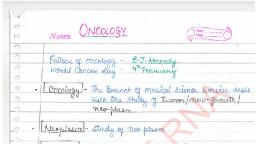 Notes ONCOLOGY
Father of oncology - B.J. Kennedy
World Cancer day - 4th February
• [Oncology] - The branch of medical science which deals
with the study of tumor/new-growth/
neoplasm
• [Neoplasia] - study of neoplasm